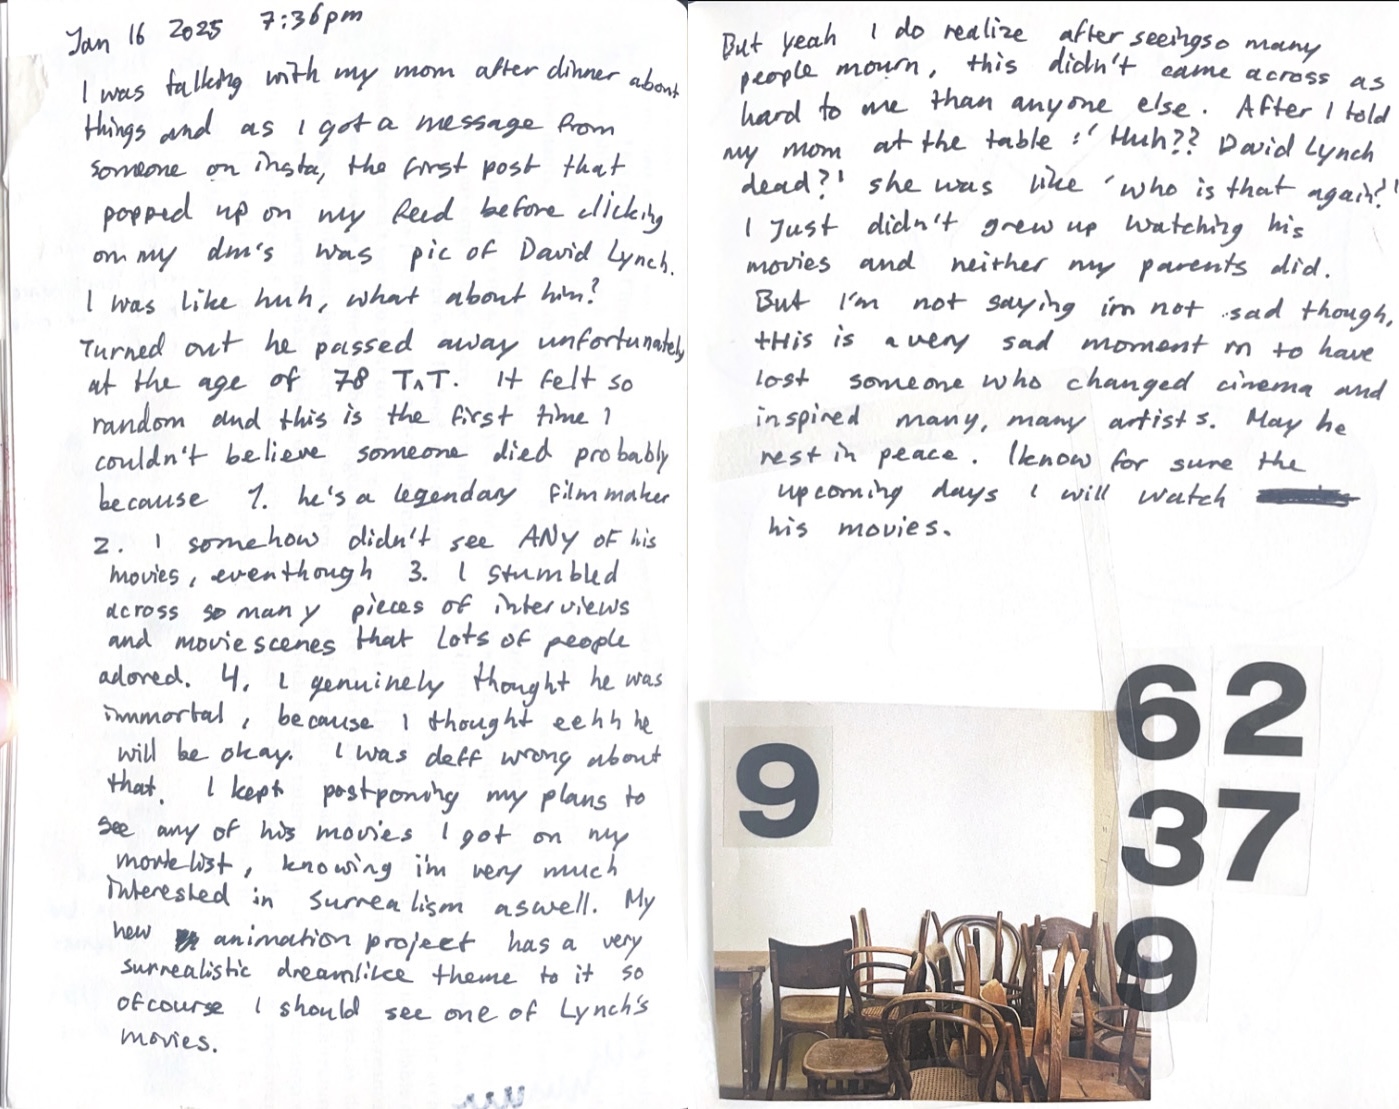 Jan 16 2025 7:36pm
I was talking with my mom after dinner about
things and as I got a message from
someone on insta, the first post that
popped up on my feed before clicking
on my dm's was pic of David Lynch.
I was like huh, what about him?
Turned out he passed away unfortunately
at the age of 78 T^T. It felt so
random and this is the first time I
couldn't believe someone died probably
because 1. he's a legendary filmmaker
2. I somehow didn't see ANY of his
movies, eventhough 3. I stumbled
across so many pieces of interviews
and movie scenes that lots of people
adored. 4. I genuinely thought he was
immortal, because I thought eehh he
will be okay. I was deff wrong about
that. I kept postponing my plans to
see any of his movies I got on my
movielist, knowing i'm very much
interested in surrealism aswell. My
new animation project has a very
surrealistic dreamlike theme to it so
ofcourse I should see one of Lynch's
movies.
But yeah I do realize after seeing so many
people mourn, this didn't came across as
hard to me than anyone else. After I told
my mom at the table :' Huh?? David Lynch
dead?' she was like 'who is that again?'
I Just didn't grew up watching his
movies and neither my parents did.
But I'm not saying im not sad though,
tHis is a very sad moment in to have
lost someone who changed cinema and
inspired many, many artists. May he
rest in peace. I know for sure the
upcoming days I will watch
his movies.
62
9
37
9